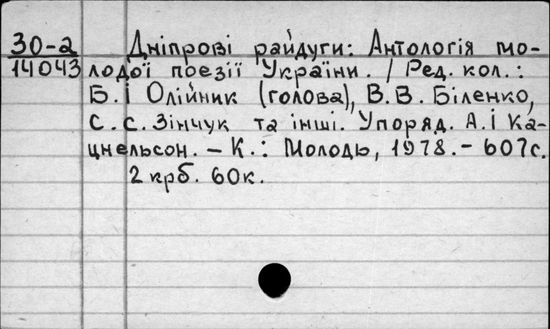 30-2 Дніпрові райдуги: Антологія мо-
14043 лодої поезії України. / Ред. кол.:
Б.І Олійник (голова), В.В. Біленко,
С.С. Зінчук та інші. Упоряд. А.І Ка-
цнельсон. – К.: Молодь, 1978. – 607с.
2 крб. 60к.